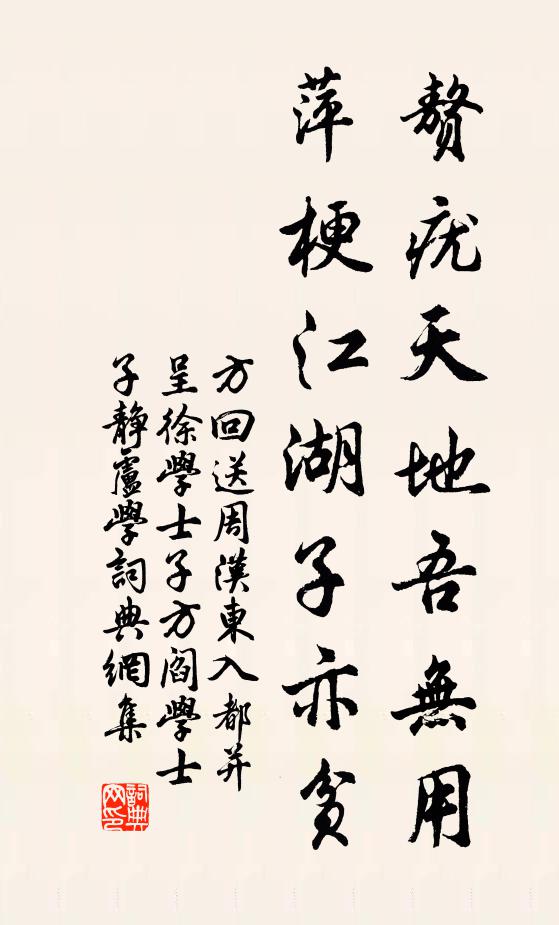 贅疣天地吾無用
萍梗江湖子亦貧
方回送周漢東入都并
呈徐學士子方閻學士
子靜盧學詞典網集
詞典网印